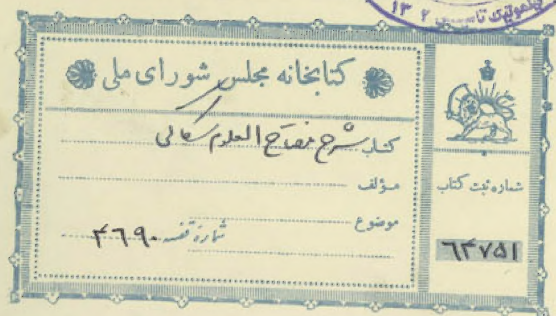 تأسیس ۱۳۰۲
کتابخانه مجلس شورای ملی
کتاب شرح مفتاح العلوم سکاکی
مؤلف
موضوع
شمارهٔ قفسه ۴۶۹۰
شماره ثبت کتاب
۶۴۷۵۱